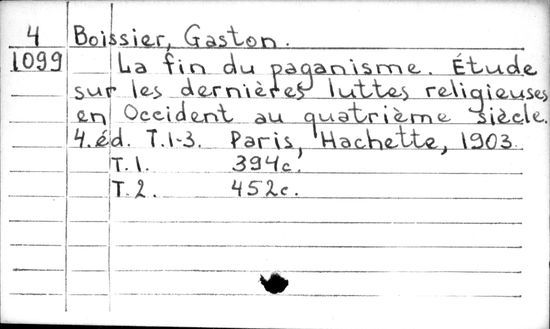 4 Boissier, Gaston.
1099 La fin du paganisme. Étude
sur les dernières luttes religieuses
en Occident au quatrième siècle.
4.éd. T.1-3. Paris, Hachette, 1903.
T.1. 394c.
T.2. 452c.